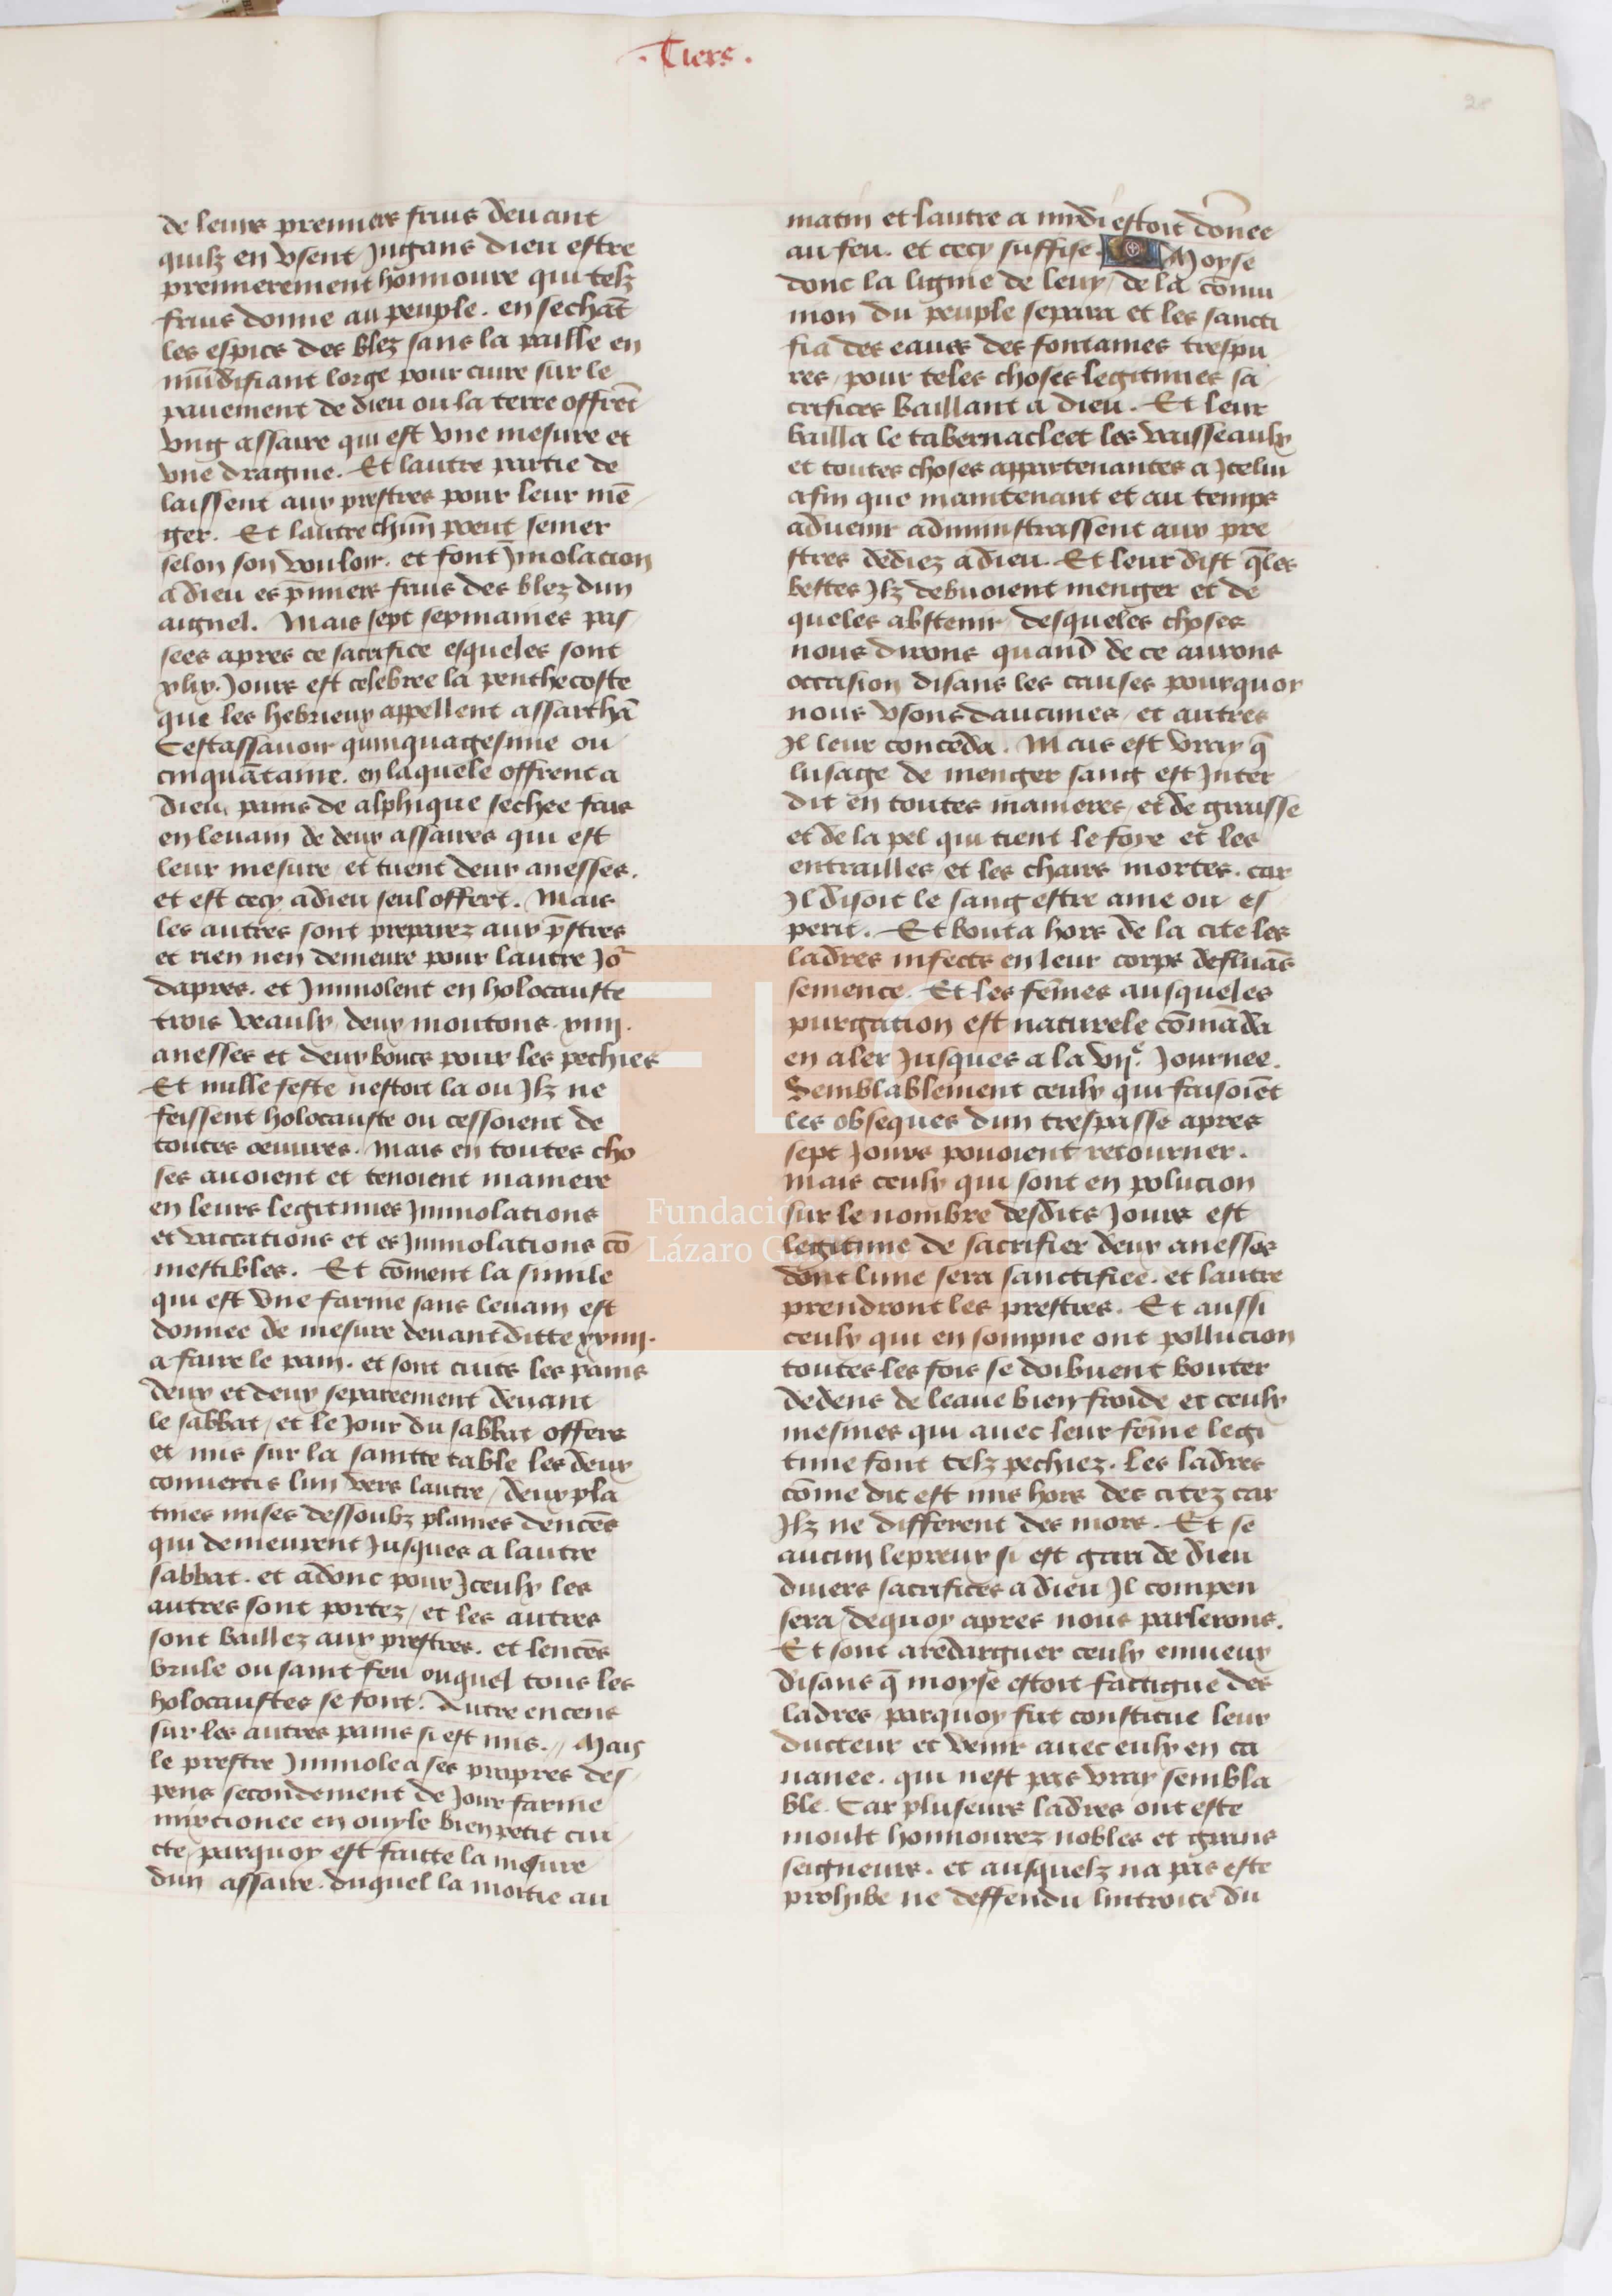 . Tiers .
28
de leurs premiers fruis deuant
quilz en vsent Jugans dieu estre
premierement honnoure qui telz
fruis donne au peuple. en sechāt
les espics des blez sans la paille en
mūdifiant lorge pour cuire sur le
pauement de dieu ou la terre offrēt
vng assaire qui est vne mesure et
vne dragme. Et lautre partie de
laissent aux prestres pour leur mē
ger. Et lautre chūn poeut semer
selon son vouloir. et font Jmolacion
a dieu es p̄miers fruis des blez dun
aignel. Mais sept sepmaines pas
sees apres ce sacrifice esqueles sont
xlix. Jours est celebree la penthecoste
que les hebrieux appellent assarthā
Cestassauoir quinquagesime ou
cinquātaine. en laquele offrent a
dieu pains de alphique sechee fais
en leuain de deux assaires qui est
leur mesure et tuent deux anesses.
et est cecy a dieu seul offert. Mais
les autres sont preparez aux p̄stres
et rien nen demeure pour lautre Jo᷑
dapres. et Jmmolent en holocauste
trois veaulx deux moutons. xiiij.
anesses et deux boucs pour les pechies
Et nulle feste nestoit la ou Jlz ne
feissent holocauste ou cessoient de
toutes oeuures. Mais en toutes cho
ses auoient et tenoient maniere
en leurs legitimes Jmmolations
et vaccations et es Jmmolations cō
mestibles. Et cōment la simile
qui est vne farine sans leuain est
donnee de mesure deuant ditte xxiiij.
a faire le pain. et sont cuits les pains
deux et deux separeement deuant
le sabbat, et le Jour du sabbat offers
et mis sur la saintte table les deux
conuertis lun vers lautre, deux pla
tines mises dessoubz plaines dencēs
qui demeurent Jusques a lautre
sabbat. et adonc pour Jceulx les
autres sont portez, et les autres
sont baillez aux prestres. et lencēs
brule ou saint feu ouquel tous les
holocaustes se font. Autre encens
sur les autres pains si est mis. // Mais
le prestre Jmmole a ses propres des
pens secondement de Jour farine
mixtionee en ouyle bien petit cui
tte, parquoy est faitte la mesure
dun assaire. duquel la moitie au
matin et lautre a mydi estoit dōnee
au feu. et cecy suffise. Moyse
donc la lignie de leuy, de la cōmu
nion du peuple separa et les sancti
fia des eaues des fontaines trespu
res, pour teles choses legitimes sa
crifices baillant a dieu. Et leur
bailla le tabernacle et les vaisseaulx
et toutes choses appartenantes a Jcelui
afin que maintenant et au temps
aduenir administrassent aux pre
stres dediez a dieu. Et leur dist q̄les
bestes Jlz debuoient menger et de
queles abstenir, desqueles choses
nous dirons quand de ce aurons
occasion disans les causes pourquoy
nous vsons daucunes, et autres
Jl leur conceda. Mais est vray q̄
lusage de menger sang est Jnter
dit en toutes manieres, et de graisse
et de la pel qui tient le foye et les
entrailles, et les chairs mortes. car
Jl disoit le sang estre ame ou es
perit. Et bouta hors de la cite les
ladres infects en leur corps defluās
semence. Et les fēmes ausqueles
purgation est naturele cōmāda
en aler Jusques a la vijᵉ. Journee.
Semblablement ceulx qui faisoiēt
les obseques dun trespasse apres
sept Jours pouoient retourner.
Mais ceulx qui sont en polucion
sur le nombre desdits Jours est
legitime de sacrifier deux anesses
dont lune sera sanctifiee. et lautre
prendront les prestres. Et aussi
ceulx qui en sompne ont pollucion
toutes les fois se doibuent bouter
dedens de leaue bien froide, et ceulx
mesmes qui auec leur fēme legi
time font telz pechiez. Les ladres
cōme dit est mis hors des citez car
Jlz ne different des mors. Et se
aucun lepreux si est gari de dieu
diuers sacrifices a dieu Jl compen
sera, dequoy apres nous parlerons.
Et sont a redarguer ceulx enuieux
disans q̄ moyse estoit fattigue des
ladres, parquoy fut constitue leur
ducteur et venir auec eulx en ca
nanee. qui nest pas vray sembla
ble. Car pluseurs ladres ont este
moult honnourez nobles et grans
seigneurs. et ausquelz na pas este
prohibe ne deffendu lintroite du
Fundación
Lázaro Galdiano